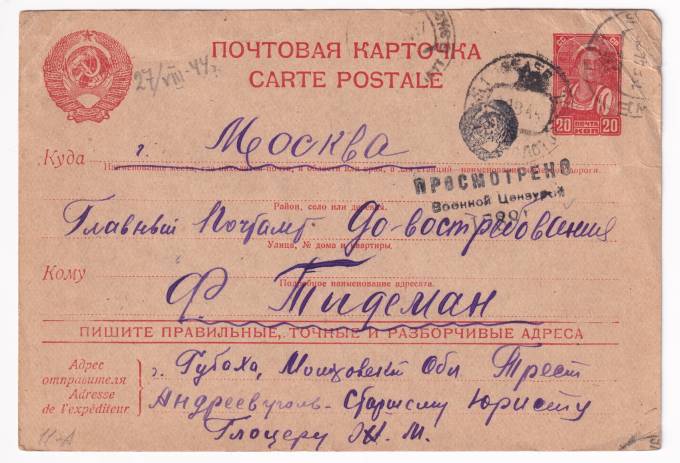 ПОЧТОВАЯ КАРТОЧКА
CARTE POSTALE
27/VIII-44г.
20 ПОЧТА КОП 20
Куда г. Москва
Наименование места, где находится почта, и области или края, а для станций-наименование железной дороги.
ПРОСМОТРЕНО
Военной Цензурой
Район, село или деревня.
Главный Почтамт До-востребования
Улица, № дома и квартиры.
Кому
Подробное наименование адресата.
Ф. Тидеман
ПИШИТЕ ПРАВИЛЬНЫЕ, ТОЧНЫЕ И РАЗБОРЧИВЫЕ АДРЕСА
Адрес отправителя
Adresse de l'expéditeur
г. Губаха, Молотовской Обл. Трест
Андреевуголь- Старшему Юристу
Глоцеру И. М.